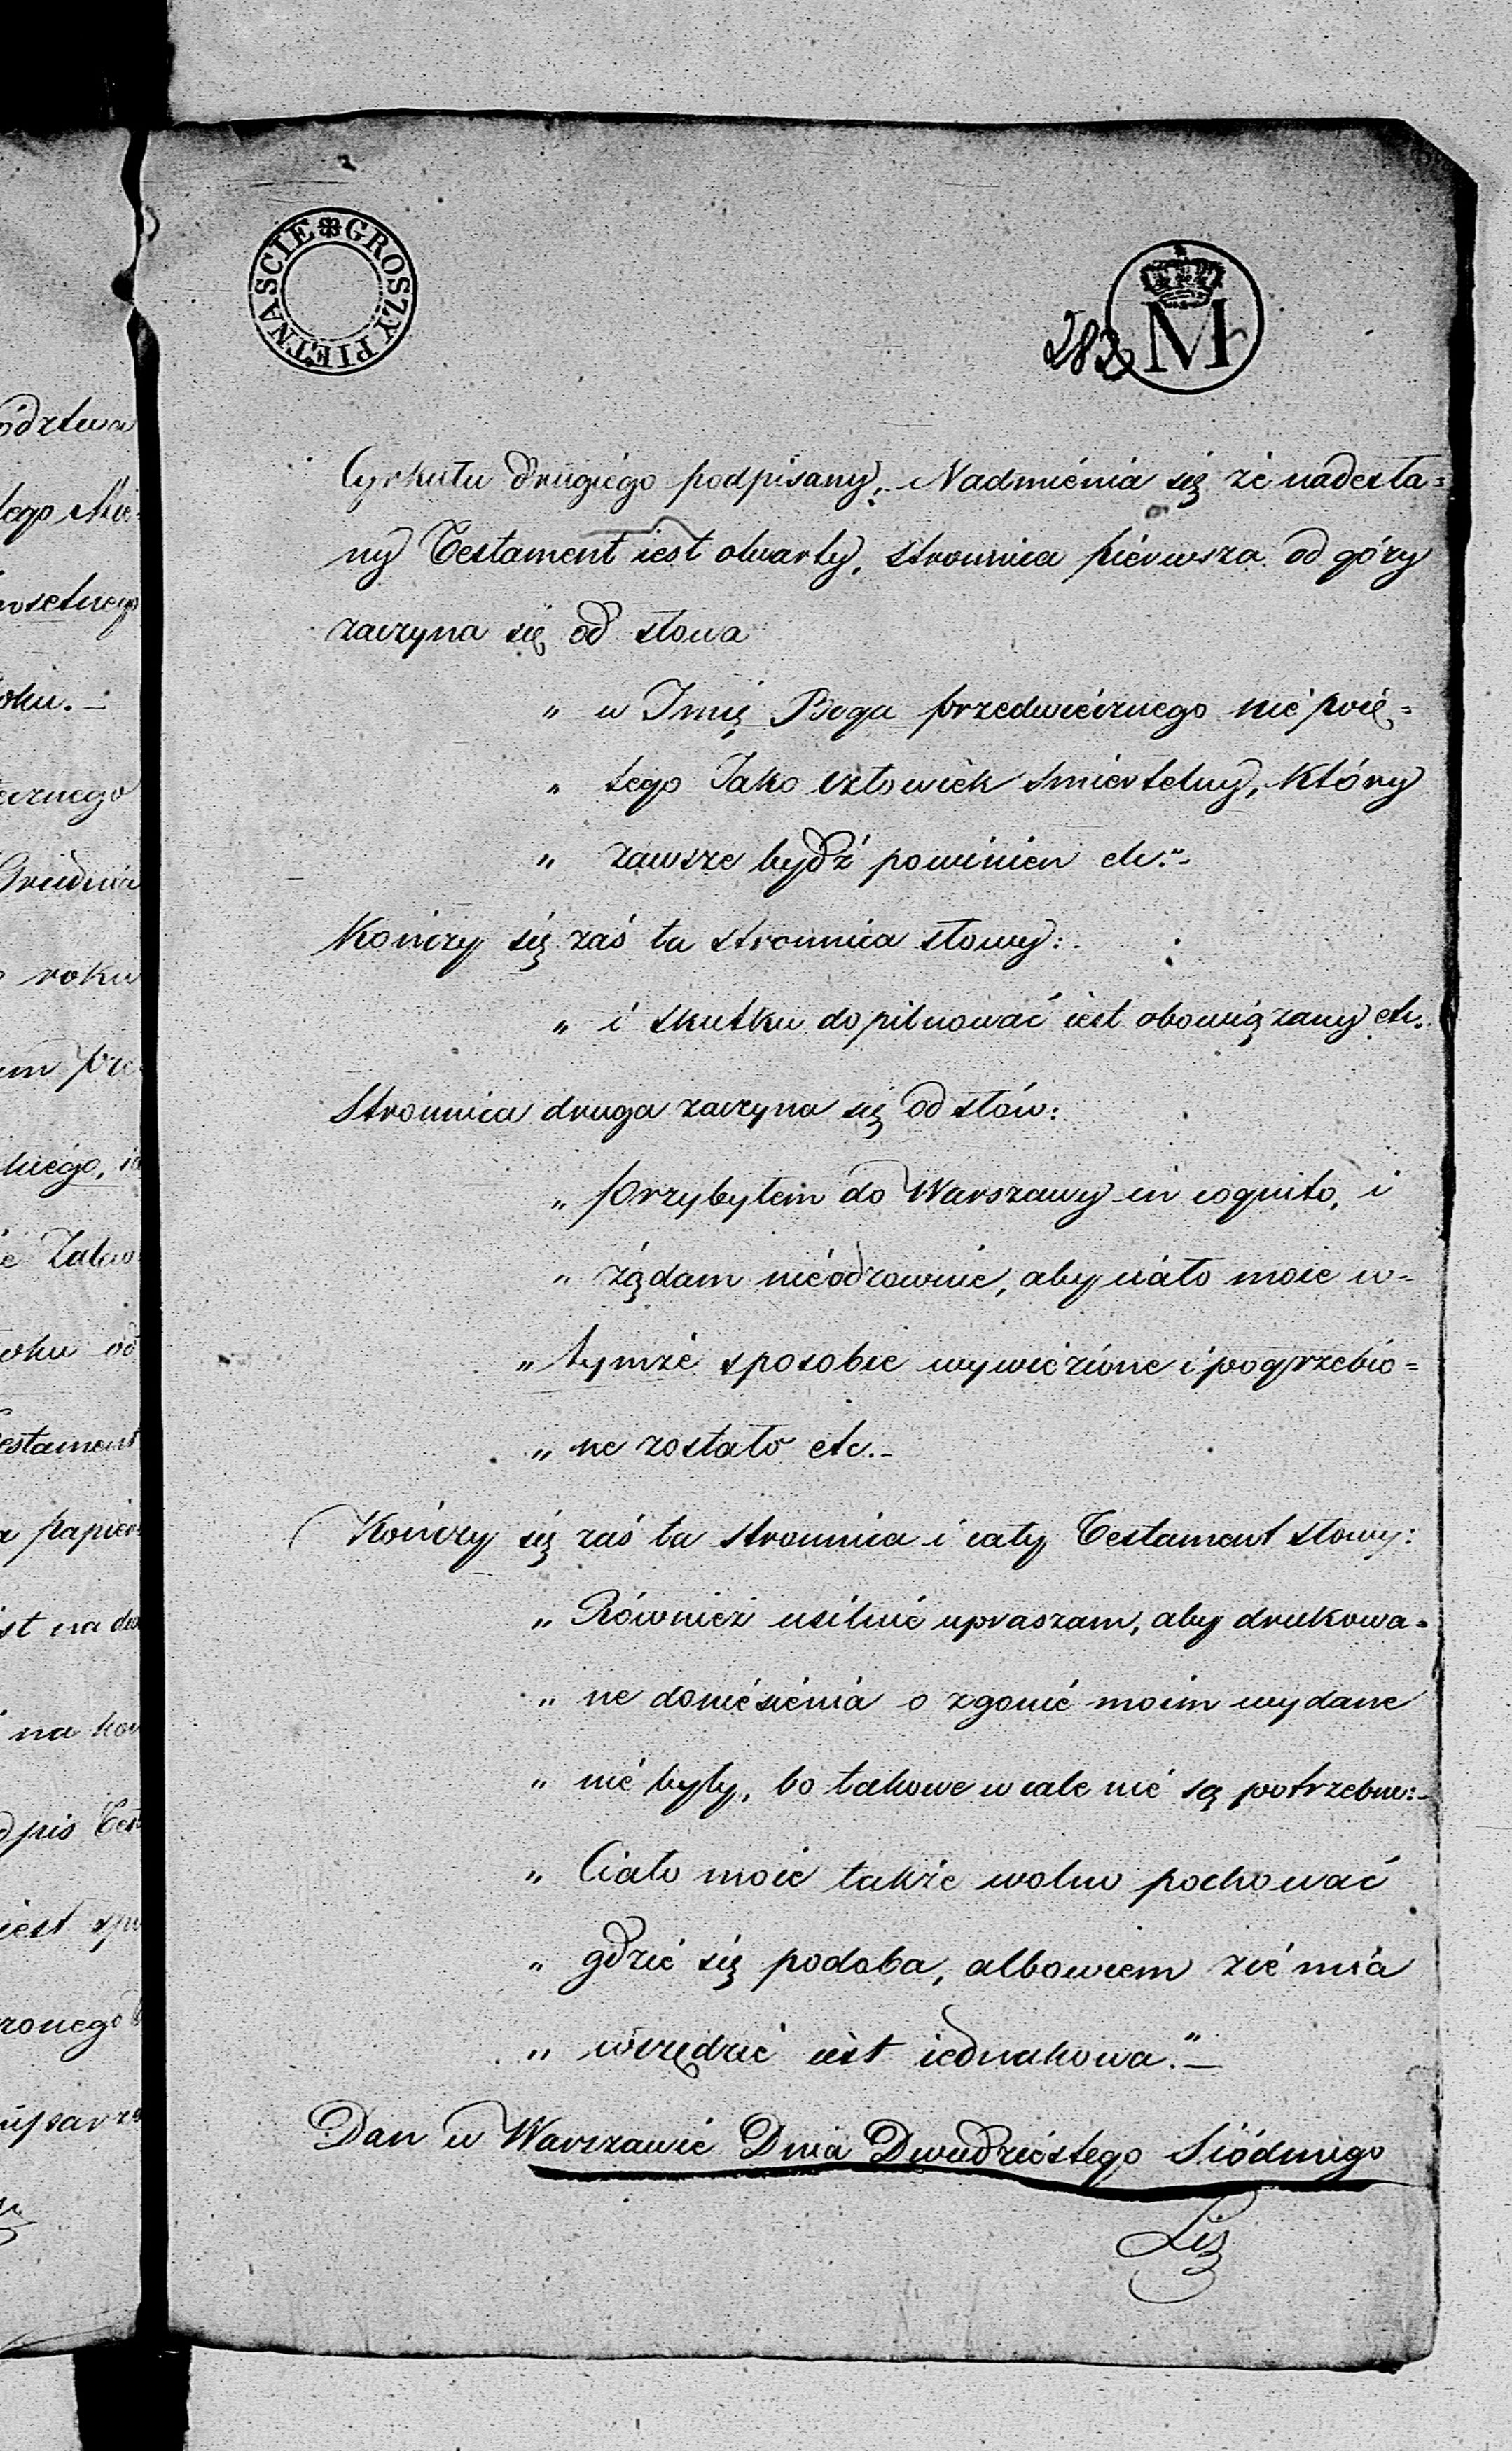 GROSZY PIETNASCIE
282
M
Cyrkułu drugiégo podpisany. Nadmiénia się że nadesła=
ny Testament iest otwarty, stronnica piérwsza od góry
zaczyna się od słowa
„ w Imię Boga przedwiecznego nie poię=
„ tego Jako człowiek śmiertelny, który
„ zawsze bydź powinien etc:"-
Kończy się zaś ta stronnica słowy:
„ i skutku dopilnować iest obowiązany etc.
Stronnica druga zaczyna się od słów:
„ przybyłem do Warszawy in cognito, i
„ żądam nieodzownie, aby ciało moie w=
„ tymże sposobie wywiezione i pogrzebio=
„ ne zostało etc.-
Kończy się zaś ta stronnica i cały Testament słowy:
„ Również usilnie upraszam, aby drukowa=
„ ne doniesienia o zgonie moim wydane
„ nie były, bo takowe wcale nie są potrzebne:-
„ Ciało moie także wolno pochować
„ gdzie się podoba, albowiem ziemia
„ wszędzie iest iednakowa."-
Dan w Warszawie Dnia Dwudziestego Siódmego
ództwa
tego
oku.-
cznego
Grudnia
roku
oku od
estament
papier
st na
iest